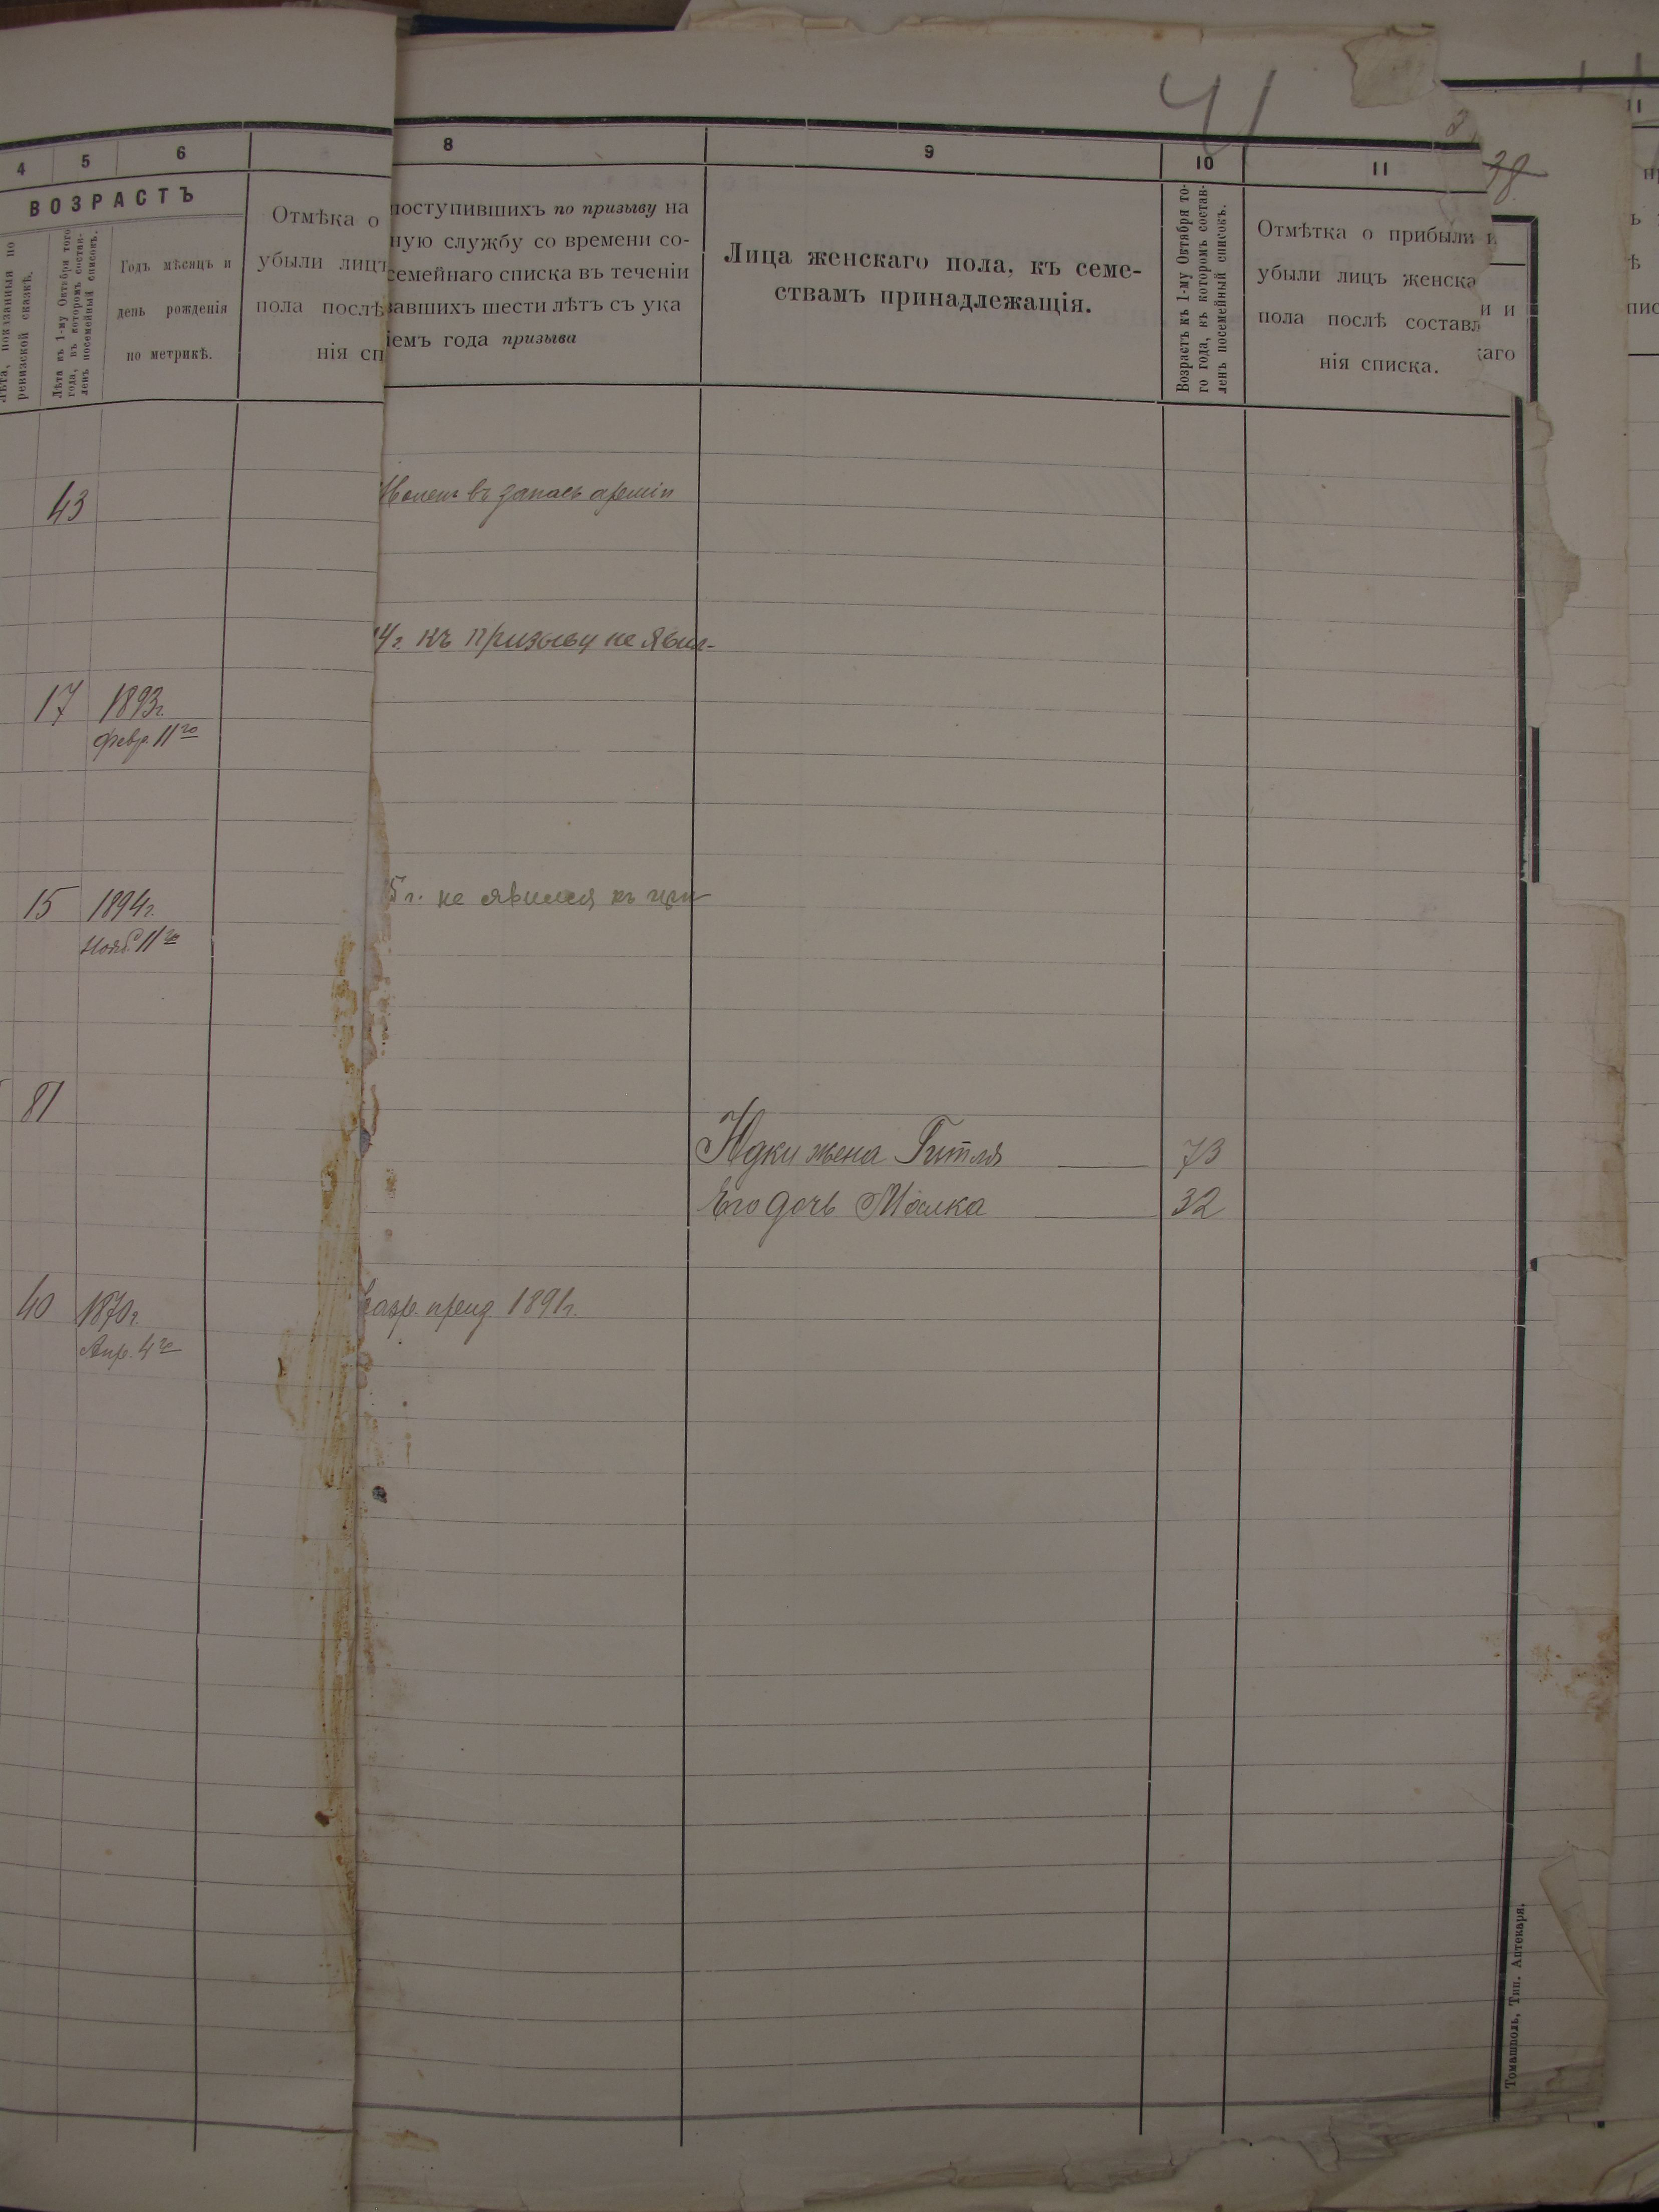 41
38
4 5 6
ВОЗРАСТЪ
ревизской сказкѣ.
Лѣта къ 1-му Октября того
года, въ которомъ состав-
ленъ посемейный списокъ.
Годъ мѣсяцъ и
день рожденія
по метрикѣ.
Отмѣка о
убыли лицъ
пола послѣ
нія сп
8 9 10 11
поступившихъ по призыву на
ную службу со времени со-
семейнаго списка въ теченіи
завшихъ шести лѣтъ съ ука
іемъ года призыва
Лица женскаго пола, къ семе-
ствамъ принадлежащія.
Возрастъ къ 1-му Октября то-
го года, въ которомъ состав-
ленъ посемейный списокъ.
Отмѣтка о прибыли и
убыли лицъ женска
пола послѣ составл
нія списка.
и и
каго
43
въ запасъ арміи
4г. къ призыву не явил-
17 1893г.
февр. 11го
5 г. не явился къ при
15 1894г.
Нояб 11го
81
Юдки жена Гитля 73
Его дочь Малка 32
40 1870г.
Апр. 4го
1891г.
Томашполь, Тип. Аптекаря.